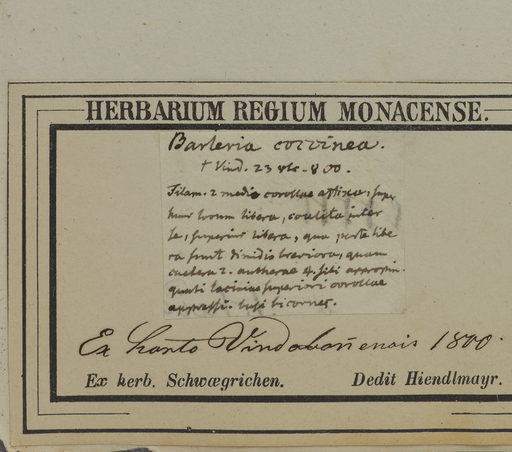 HERBARIUM REGIUM MONACENSE.
Barleria coccinea.
† Vind. 23 800.
Filam. 2 media corollae affixa, super
hunc locum libera, coalita inter
se, superius libera, qua parte libe
ra sunt dimidio breviora, quam
caetera 2. antherae 4. sibi approxim.
quasi laciniae superiori corollae
appressi. bicornes.
Ex horto Vindobonensis 1800.
Ex herb. Schwægrichen. Dedit Hiendlmayr.